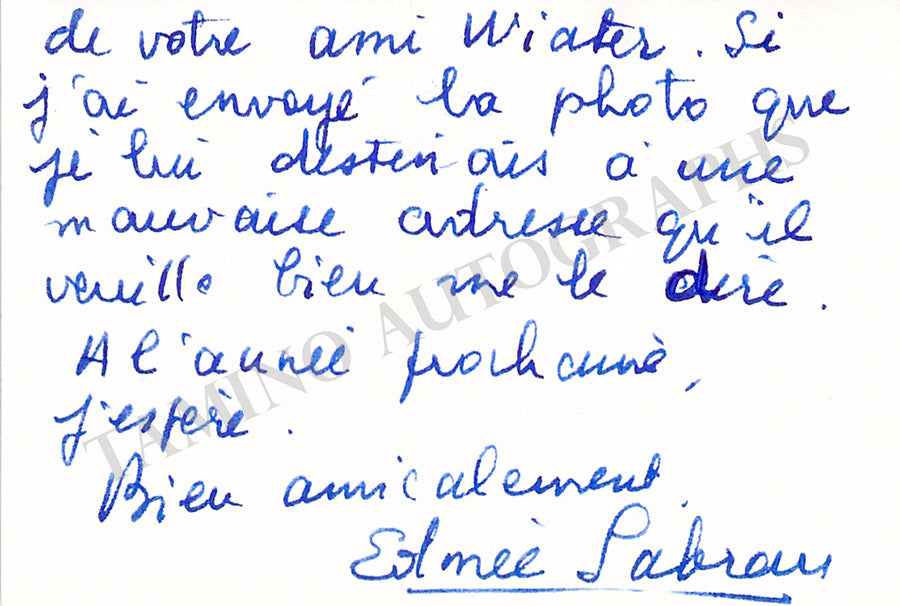 de votre ami Wiater. Si
j'ai envoyé la photo que
je lui destinais à une
mauvaise adresse qu'il
veuille bien me le dire.
A l'année prochaine,
j'espère.
Bien amicalement.
Edmée Sabran
TAMINO AUTOGRAPHS